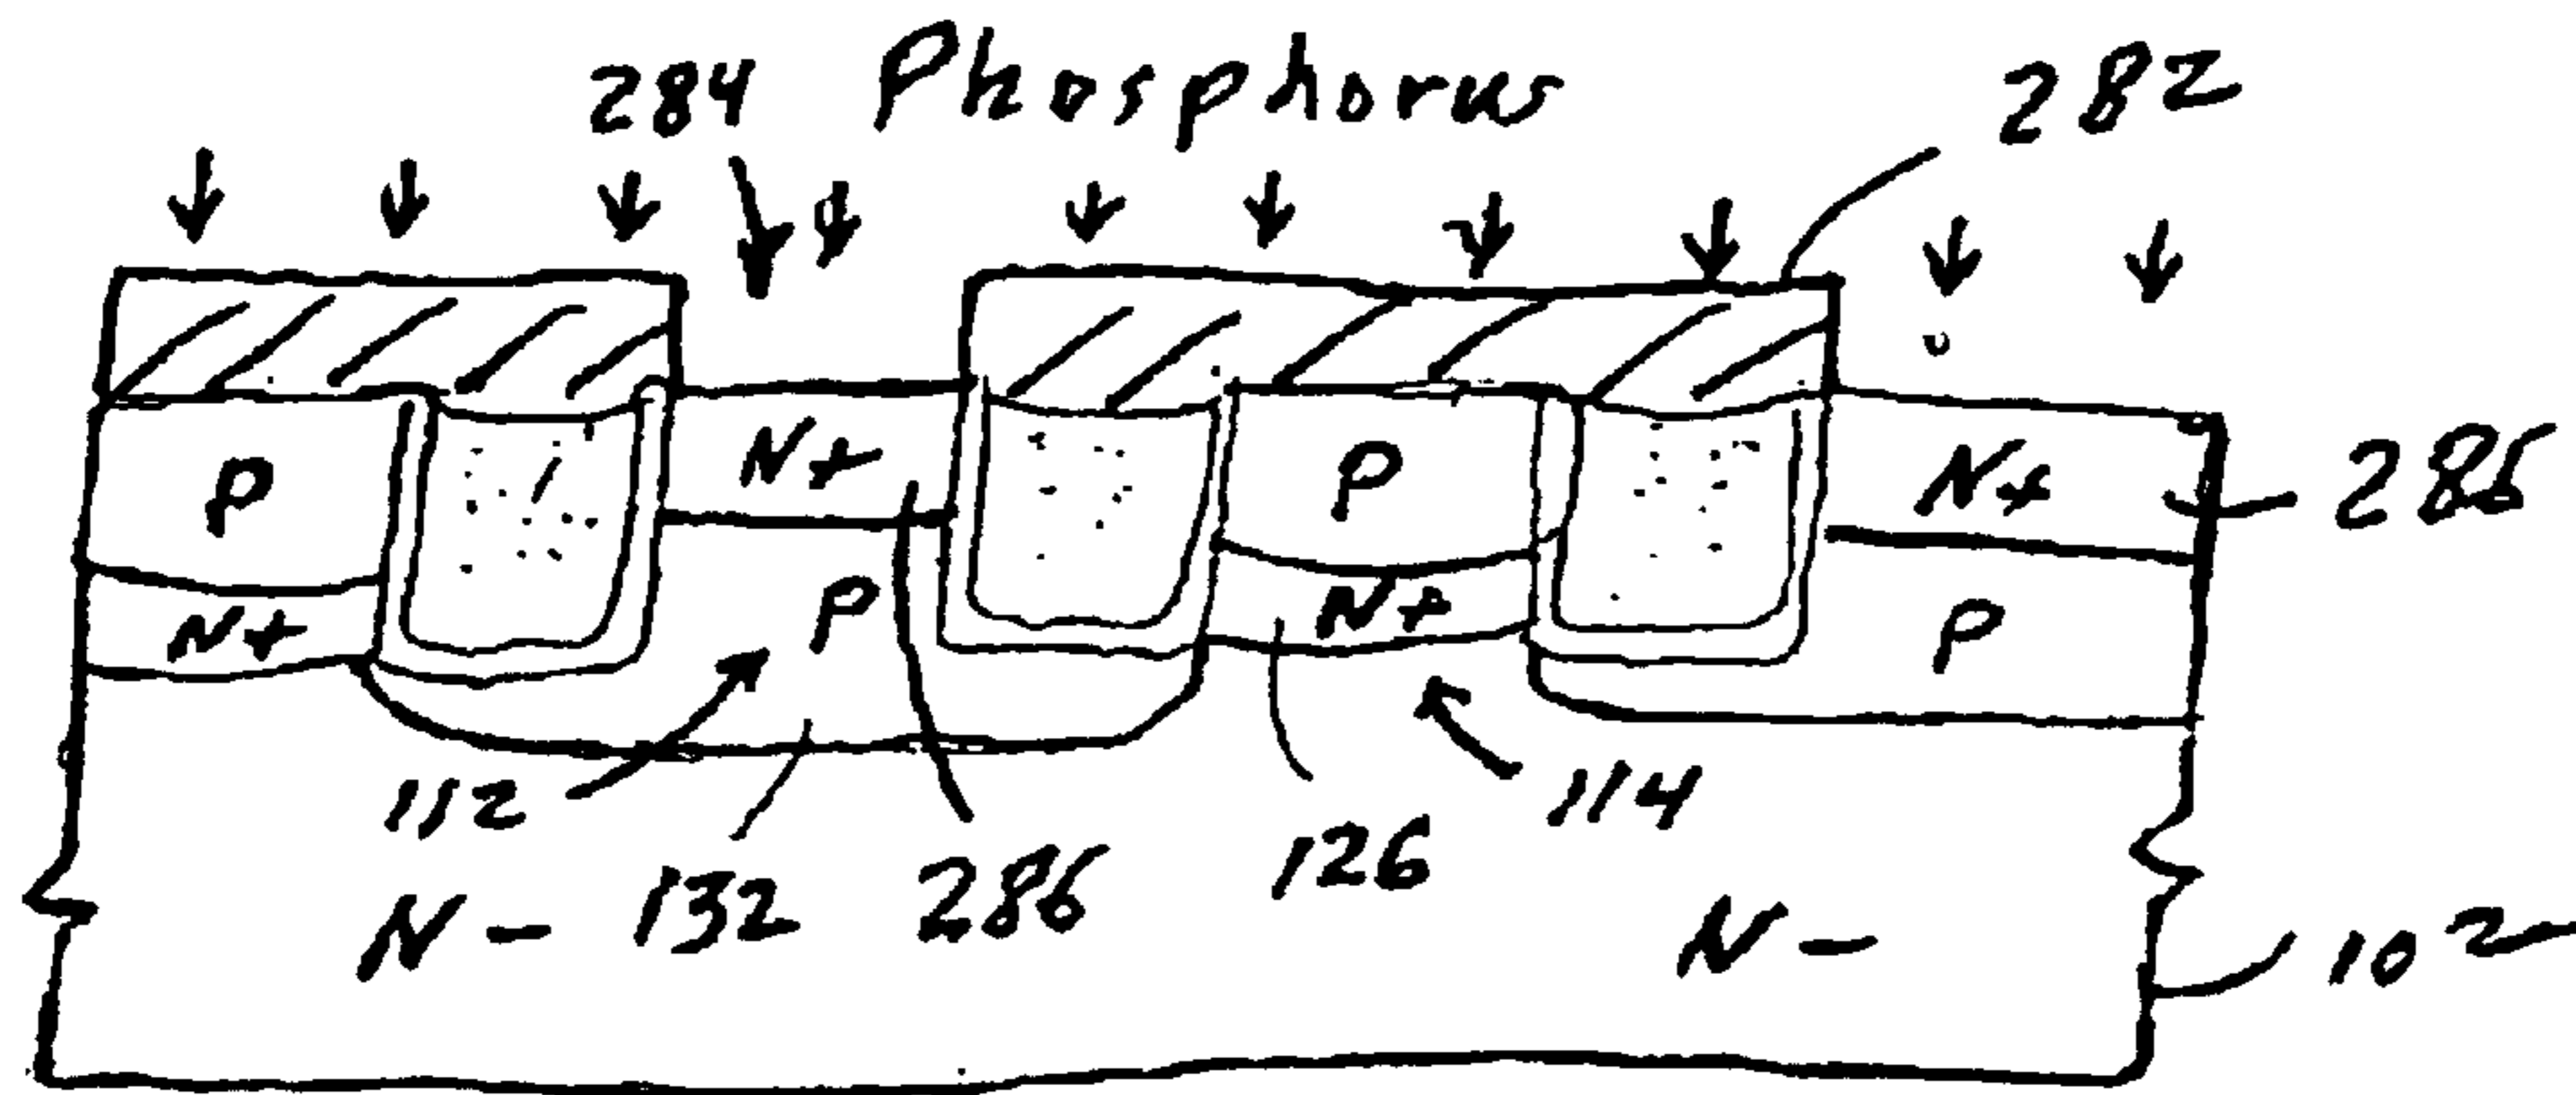 284 Phosphorus 282
P N+ P N+ 286
N+ P N+ P
112 114
132 286 126
N- N- 102